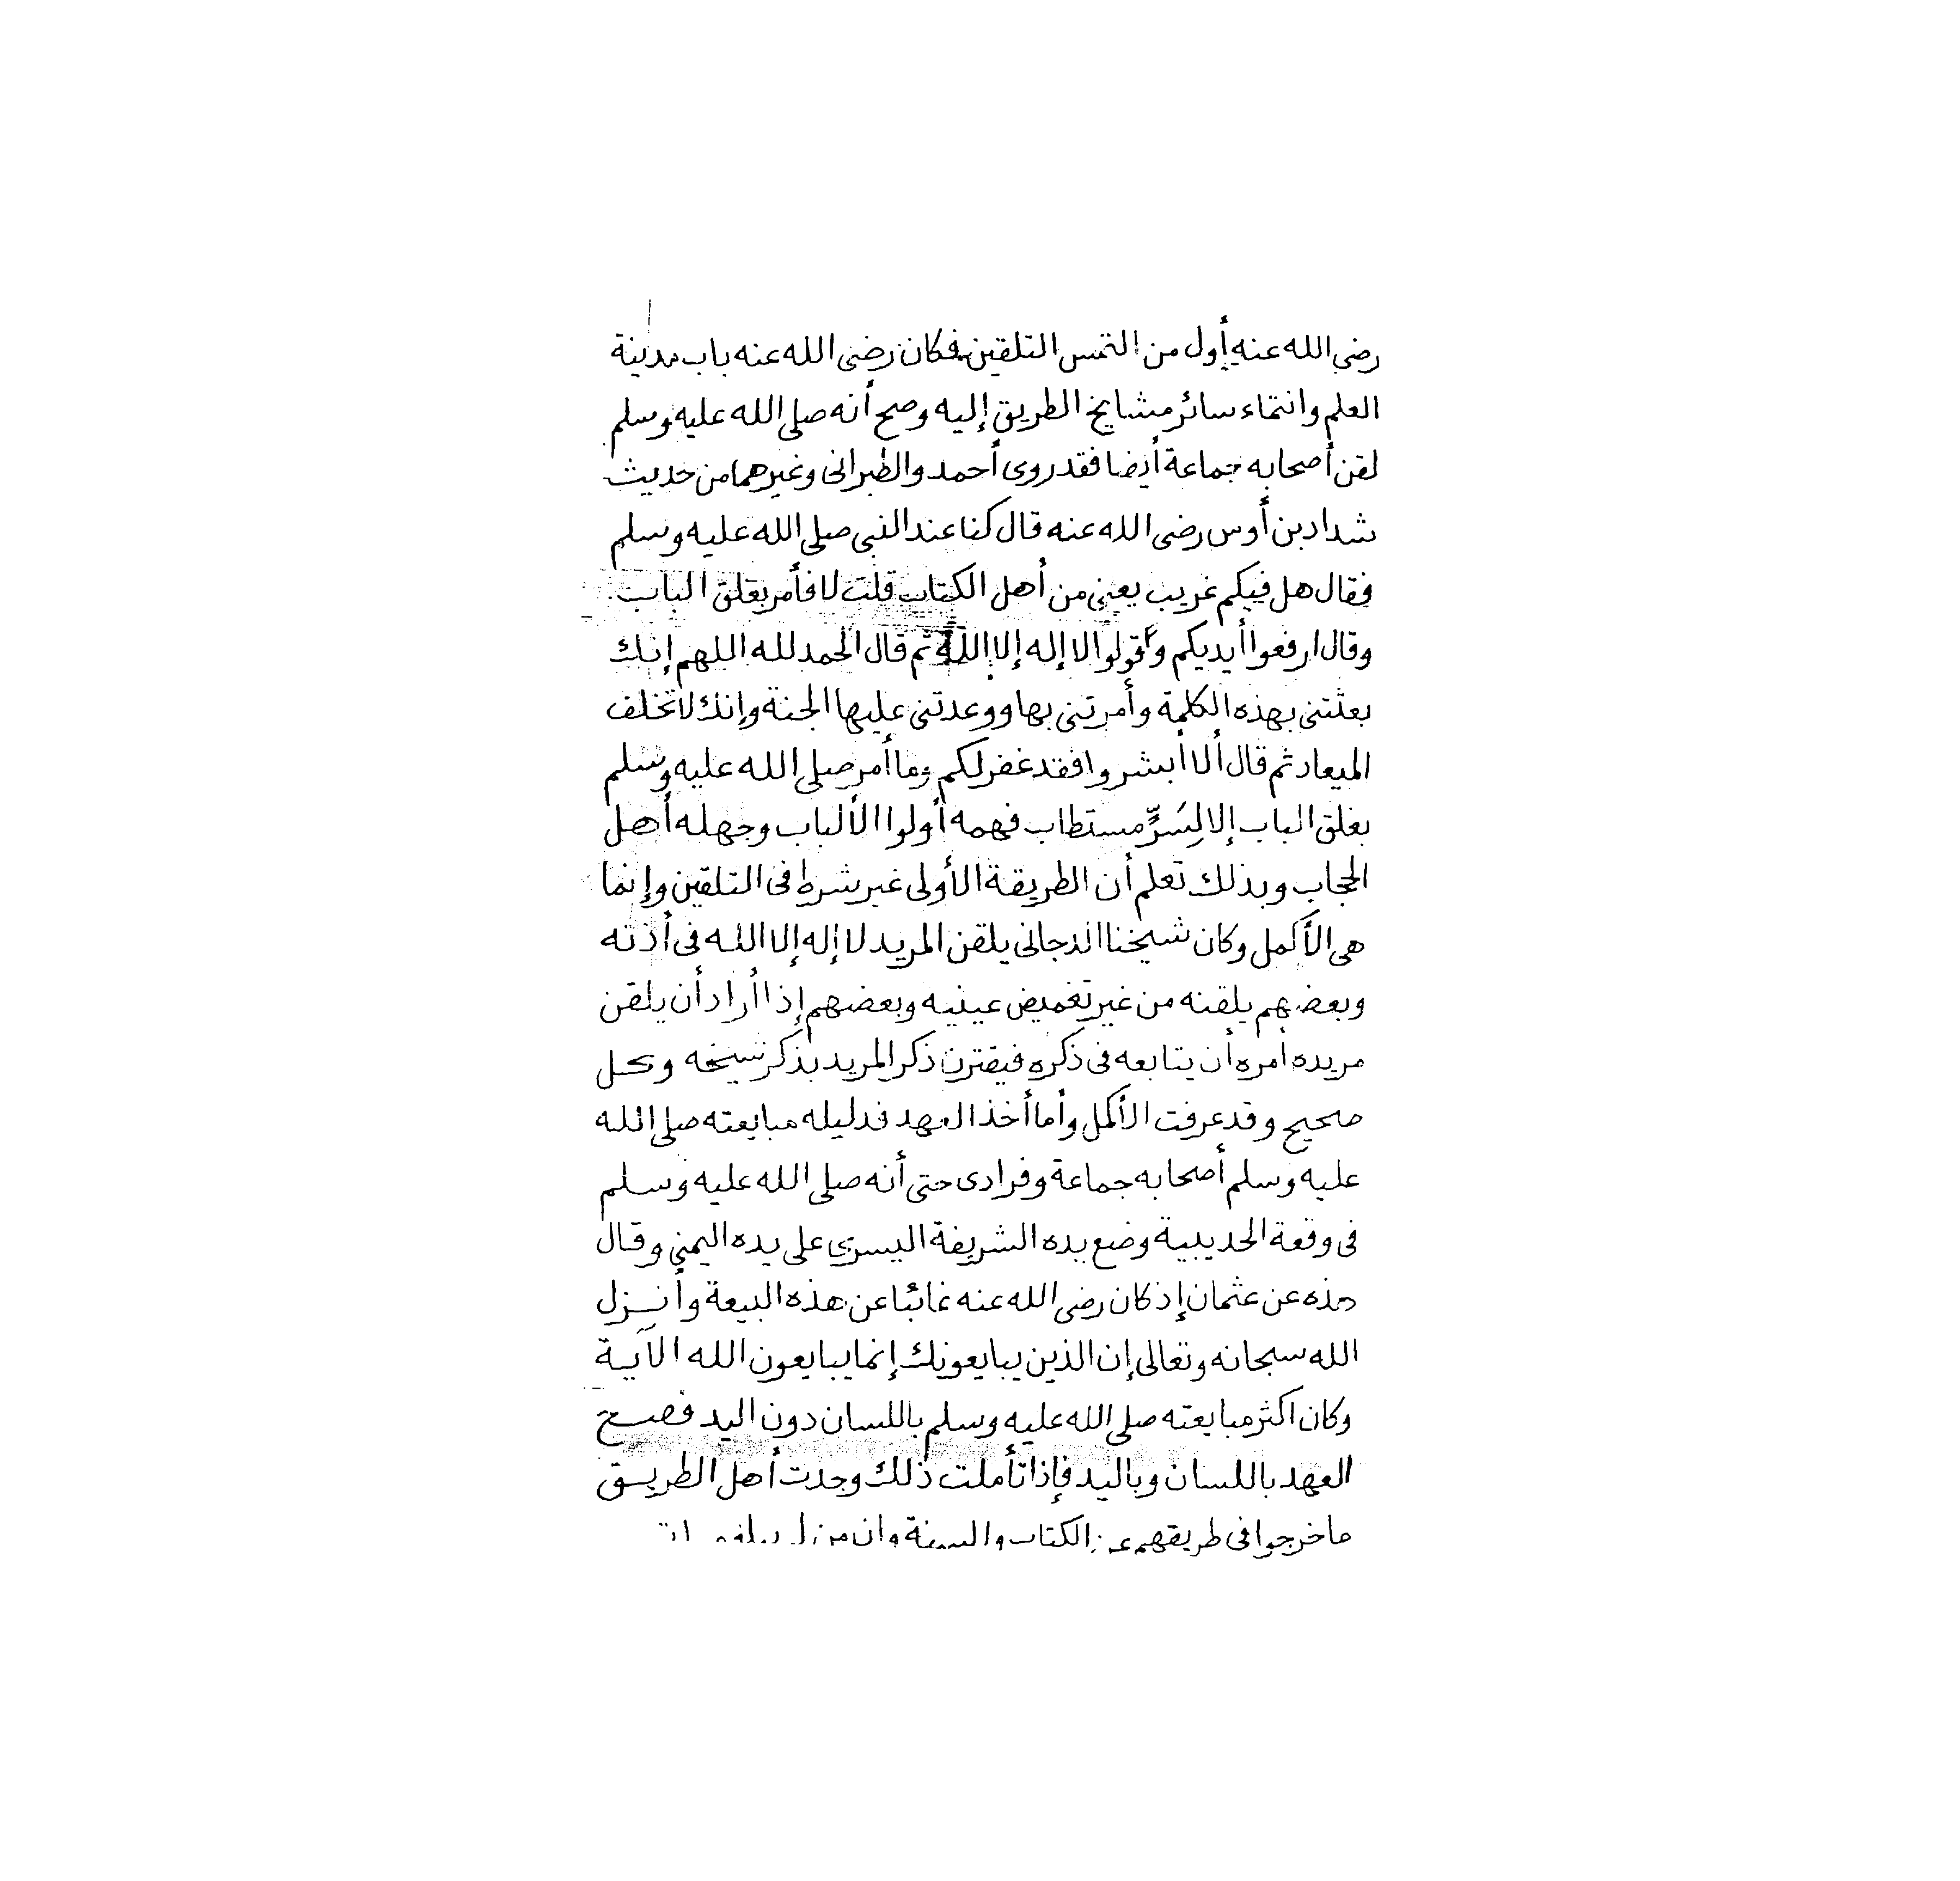 رضى الله عنه أول من التمس التلقين فكان رضى الله عنه باب مدينة
العلم وانتماء سائر مشايخ الطريق إليه وصح أنه صلى الله عليه وسلم
لقن أصحابه جماعة أيضا فقد روى أحمد والطبرانى وغيرهما من حديث
شداد بن أوس رضى الله عنه قال كنا عند النبى صلى الله عليه وسلم
فقال هل فيكم غريب يعنى من أهل الكتاب قلت لا فأمر بغلق الباب
وقال ارفعوا أيديكم وقولوا لا إله إلا الله ثم قال الحمد لله اللهم إنك
بعثتنى بهذه الكلمة وأمرتنى بها ووعدتنى عليها الجنة وإنك لا تخلف
الميعاد ثم قال ألا أبشروا فقد غفر لكم وما أمر صلى الله عليه وسلم
بغلق الباب إلا لِسَرٍّ مستطاب فهمه أولوا الألباب وجهله أهل
الحجاب وبذلك تعلم أن الطريقة الأولى غير شرط فى التلقين وإنما
هى الأكمل وكان شيخنا الدجانى يلقن المريد لا إله إلا الله فى أذنه
وبعضهم يلقنه من غير تغميض عينيه وبعضهم إذا أراد أن يلقن
مريده أمره أن يتابعه فى ذكره فيقترن ذكر المريد بذكر شيخه وكل
صحيح وقد عرفت الأكمل وأما أخذ العهد فدليله مبايعته صلى الله
عليه وسلم أصحابه جماعة وفرادى حتى أنه صلى الله عليه وسلم
فى وقعة الحديبية وضع يده الشريفة اليسرى على يده اليمنى وقال
هذه عن عثمان إذ كان رضى الله عنه غائبا عن هذه البيعة وأنزل
الله سبحانه وتعالى إن الذين يبايعونك إنما يبايعون الله الآية
وكان اكثر مبايعته صلى الله عليه وسلم باللسان دون اليد فصح
العهد باللسان وباليد فإذا تأملت ذلك وجدت أهل الطريق
ما خرجوا فى طريقهم عن الكتاب والسنة وان من